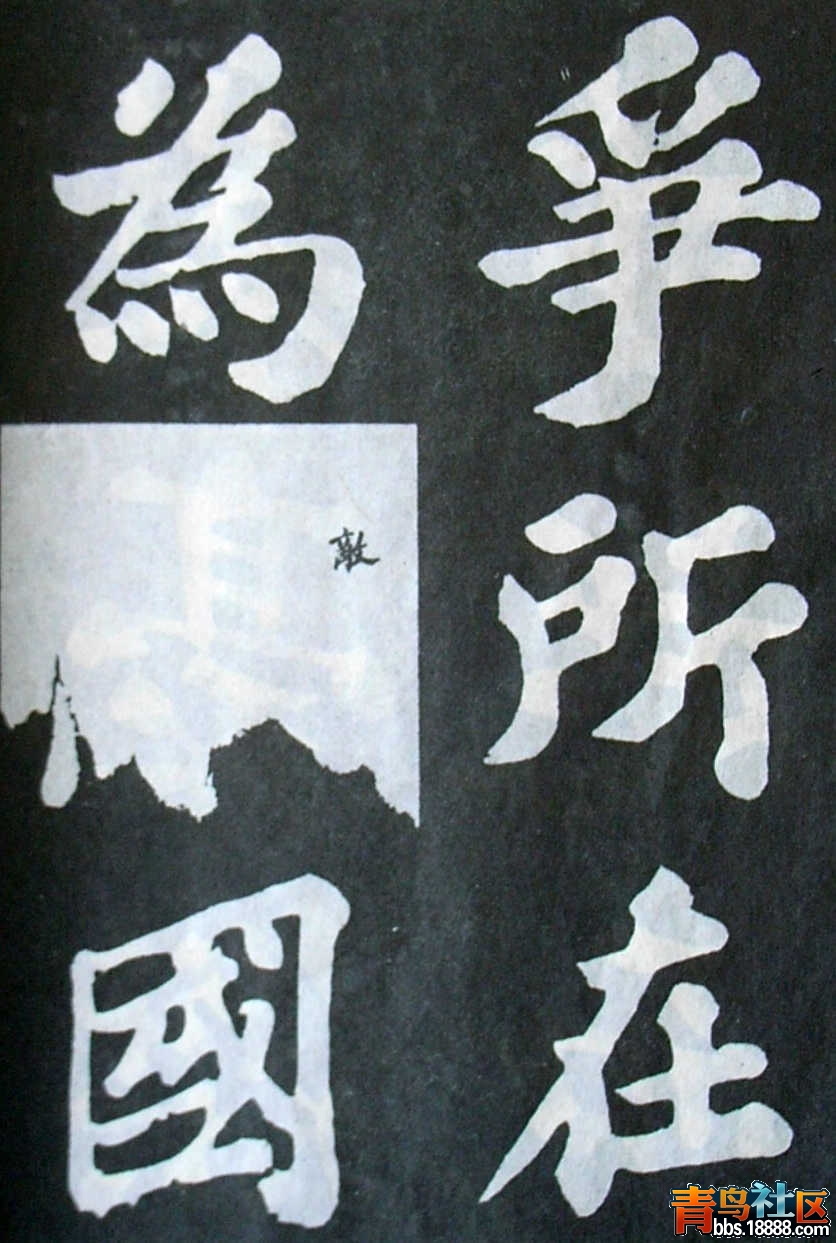 爭所在
為敵國
青鸟社区
bbs.18888.com